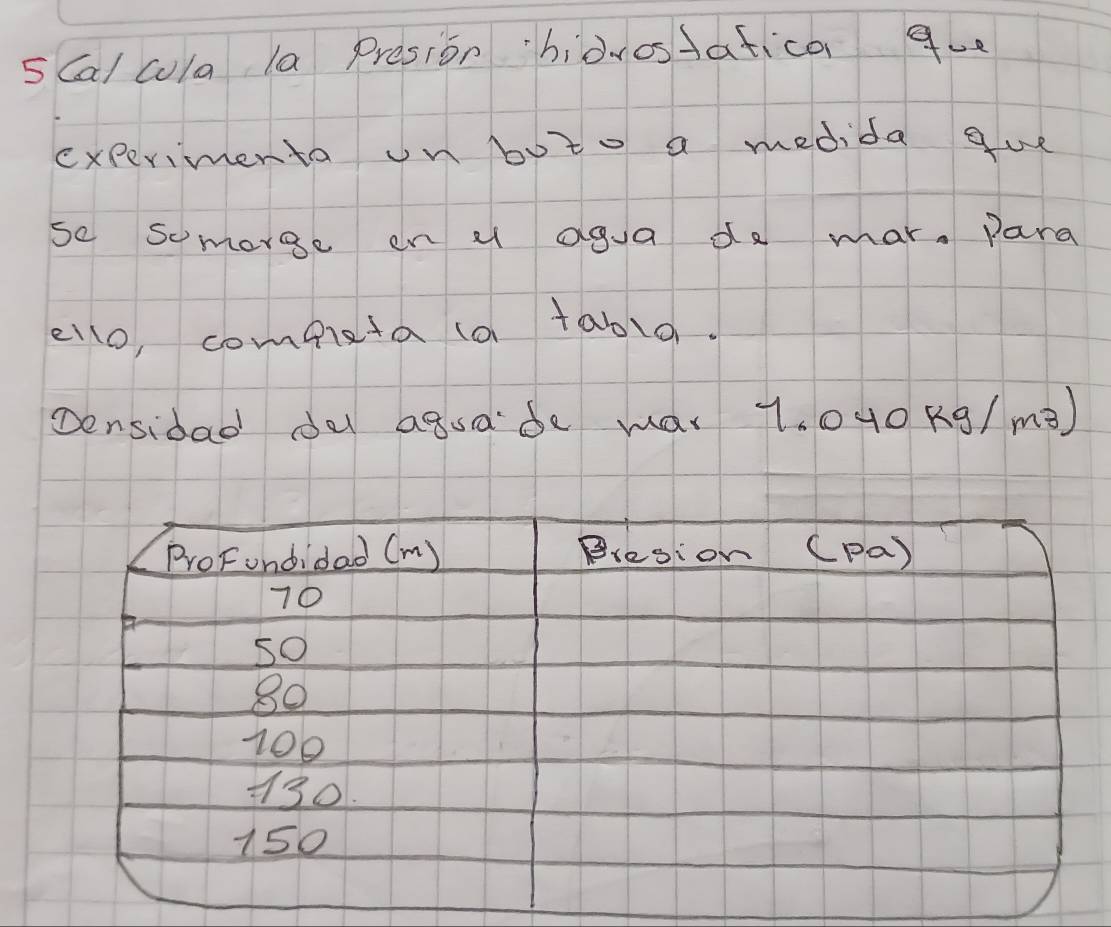 5 Calcula la Presión hidrostatica que
experimenta un buzo a medida que
se sumerge en el agua de mar. Para
ello, completa la tabla.
Densidad del agua de mar 1.040 Kg/m3)
Profundidad (m) Presion (Pa)
10
50
80
100
130.
150